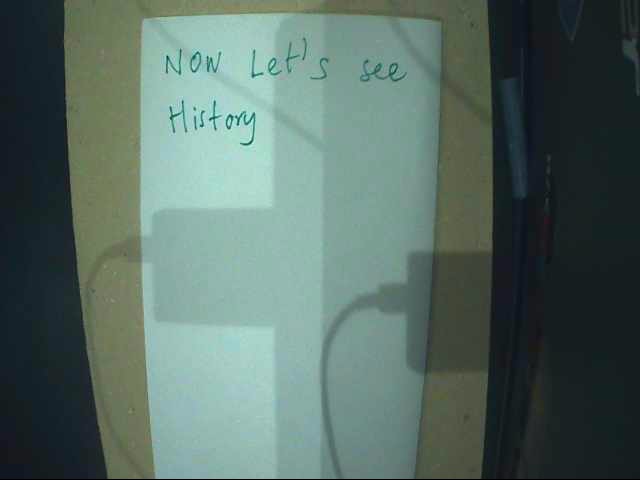 Now Let's see
History